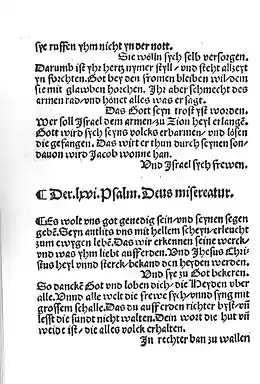 sye ruffen yhm nicht yn der nott.
Sie wöln sych selb versorgen.
Darumb ist yhr hertz nymer styll / und steht alltzeyt
yn forchten. Got bey den fromen bleiben wil / dem
sie mit glawben horchen. Ihr aber schmecht des
armen rad / und hönet alles was er sagt.
Das Gott seyn trost yst worden.
Wer soll Israel dem armen / zu Zion heyl erlangē.
Gott wird sych seyns volcks erbarmen / und lösen
die gefangen. Das wirt er thun durch seynen son /
dauon wird Jacob wonne han.
Und Israel sych frewen.
¶ Der. lxvi. Psalm. Deus misereatur.
¶ Es wolt uns got genedig sein / und seynen segen
gebē. Seyn antlits uns mit hellem scheyn / erleucht
zum ewygen lebē. Das wir erkennen seine werck /
und was yhm liebt auff erden. Und Jhesus Chri-
stus heyl unnd sterck / bekand den heyden werden.
Und sye zu Got bekeren.
So danckē Got und loben dich / die Heyden uber
alle. Unnd alle welt die frewe sych / unnd syng mit
grossem schalle. Das du auff erden richter byst / uñ
lesst die sundt nicht walten. Dein wort die hut uñ
weide ist / die alles volck erhalten.
In rechter ban zu wallen